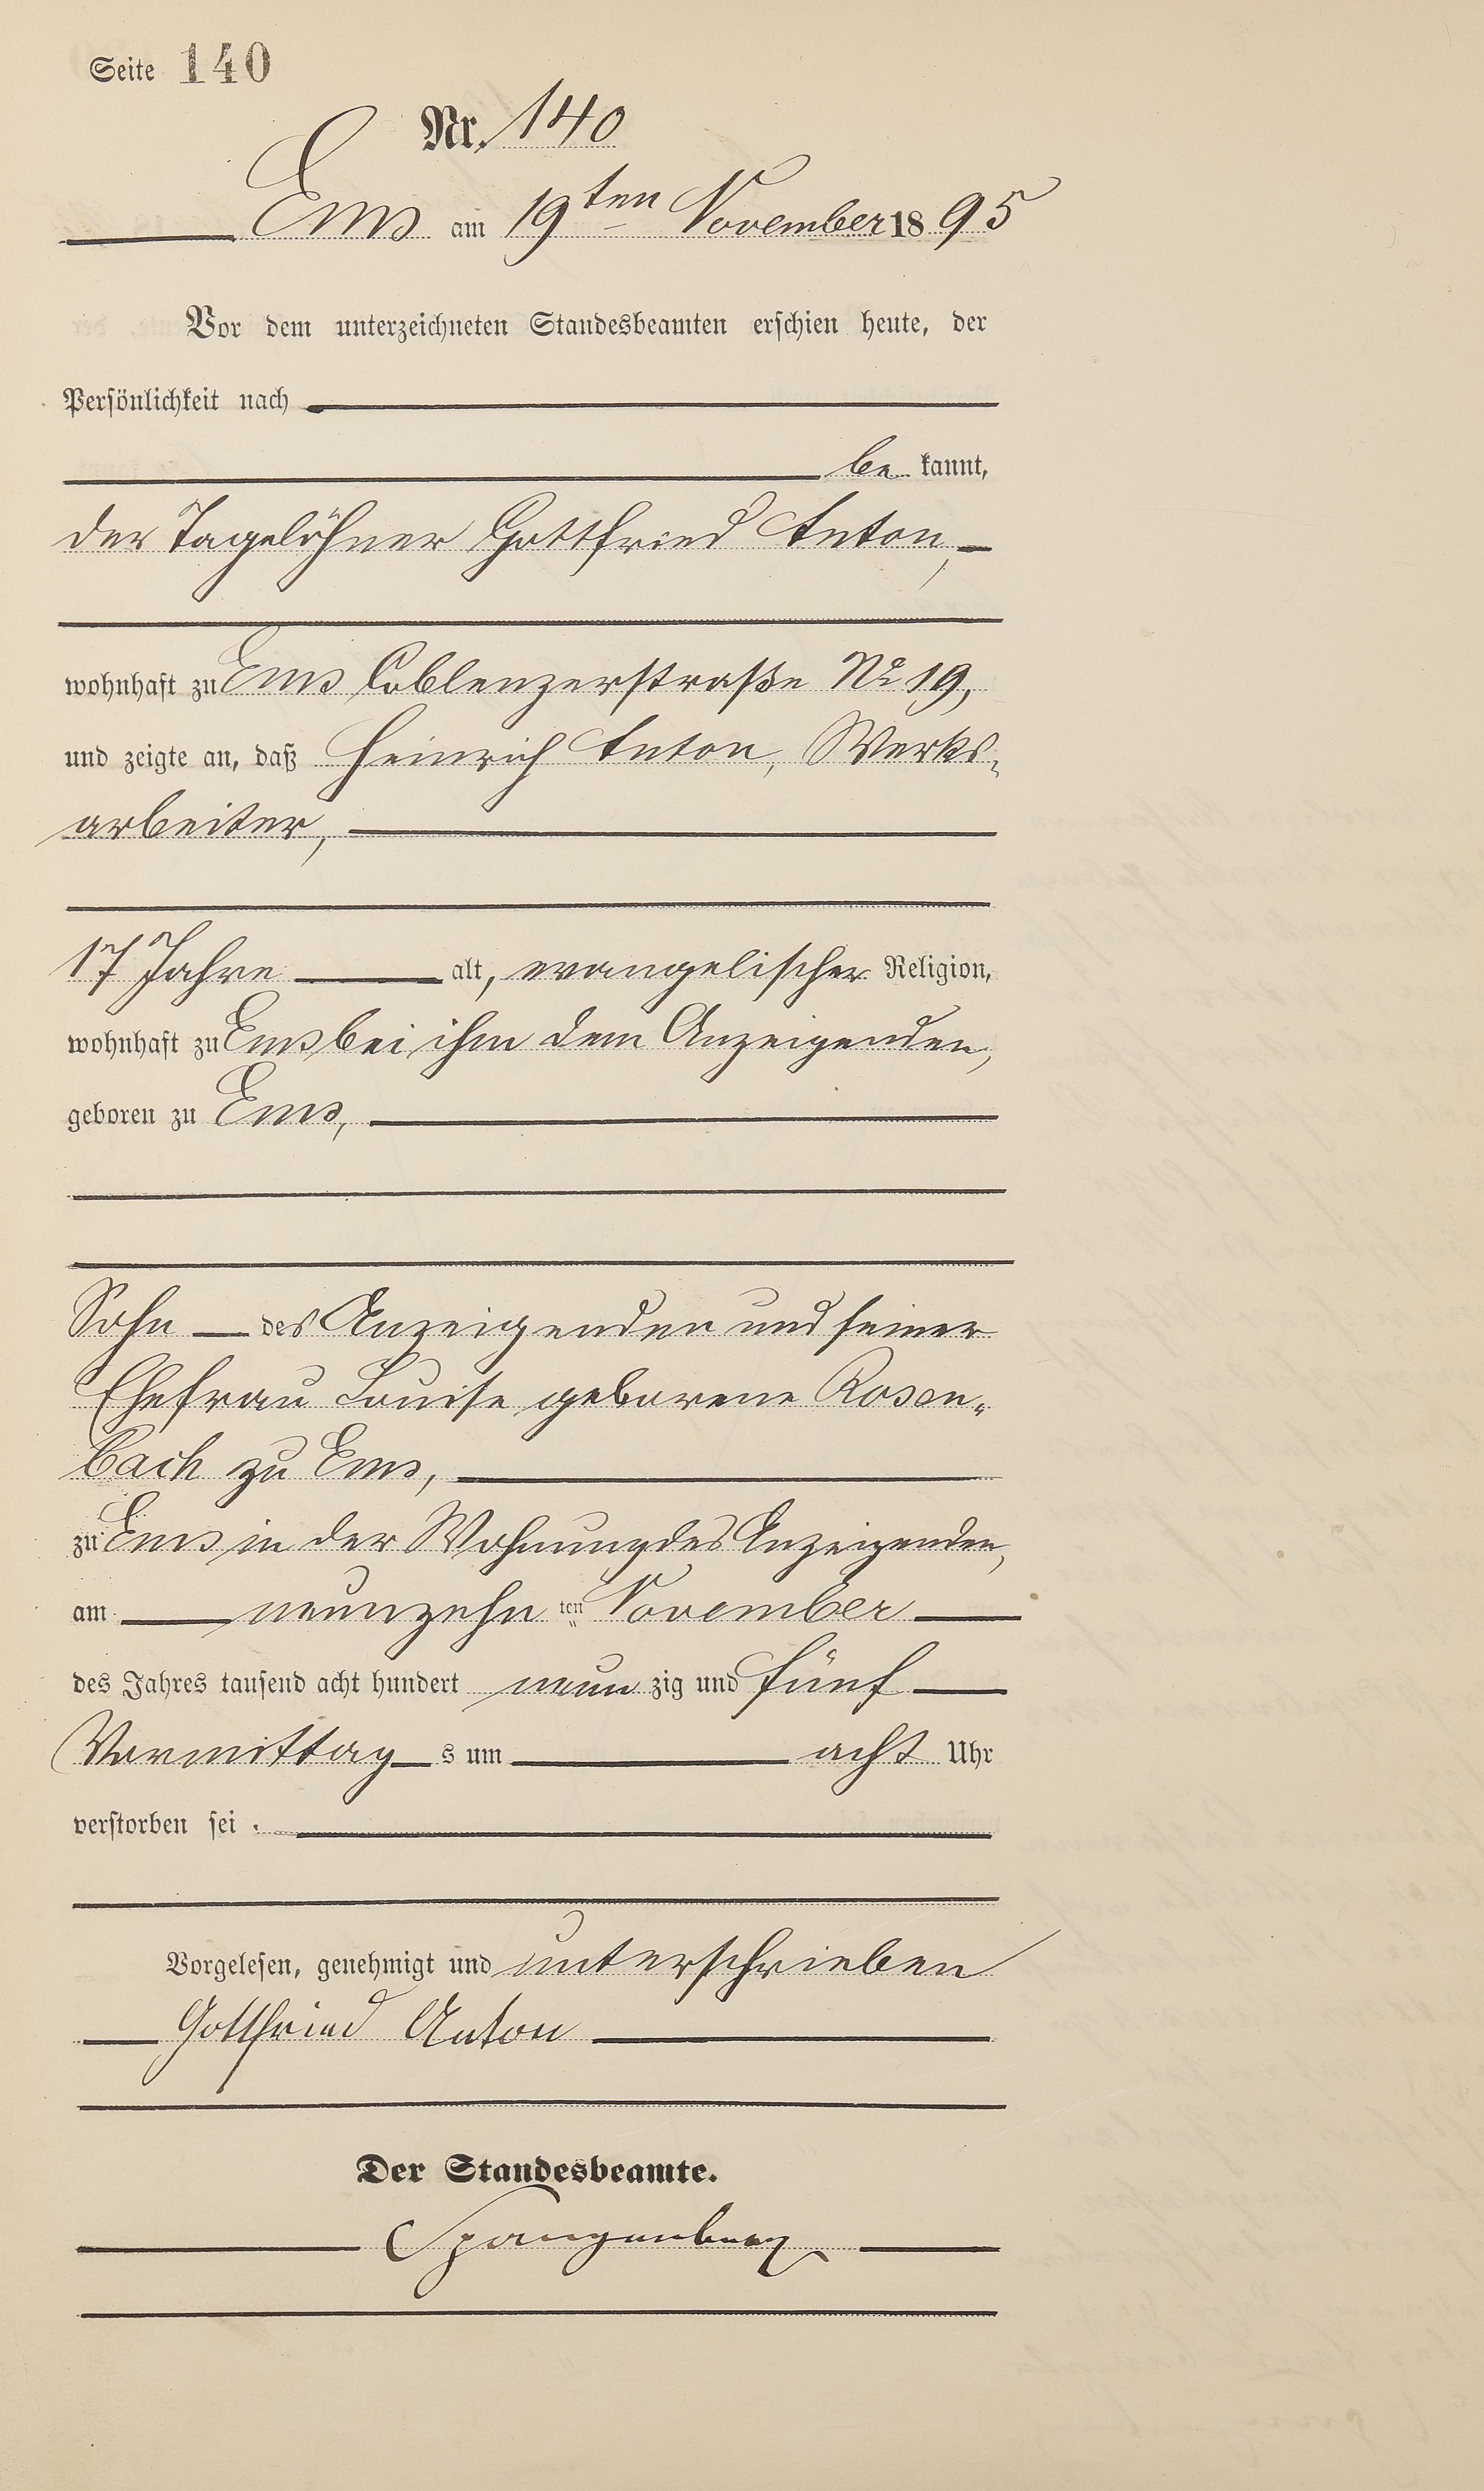 Seite 140
Nr. 140
Ems am 19ten November 1895
Vor dem unterzeichneten Standesbeamten erschien heute, der
Persönlichkeit nach
be kannt,
der Tagelöhner Gottfried Anton,
wohnhaft zu Ems Coblenzerstraße No 19,
und zeigte an, daß Heinrich Anton, Werks-
arbeiter,
17 Jahre alt, evangelischer Religion,
wohnhaft zu Ems bei ihm dem Anzeigenden,
geboren zu Ems,
Sohn des Anzeigenden und seiner
Ehefrau Louise geborene Rosen-
bach zu Ems,
zu Ems in der Wohnung des Anzeigenden,
am neunzehn ten November
des Jahres tausend acht hundert neun zig und fünf
Vormittag s um acht Uhr
verstorben sei.
Vorgelesen, genehmigt und unterschrieben
Gottfried Anton
Der Standesbeamte.
Spangenberg